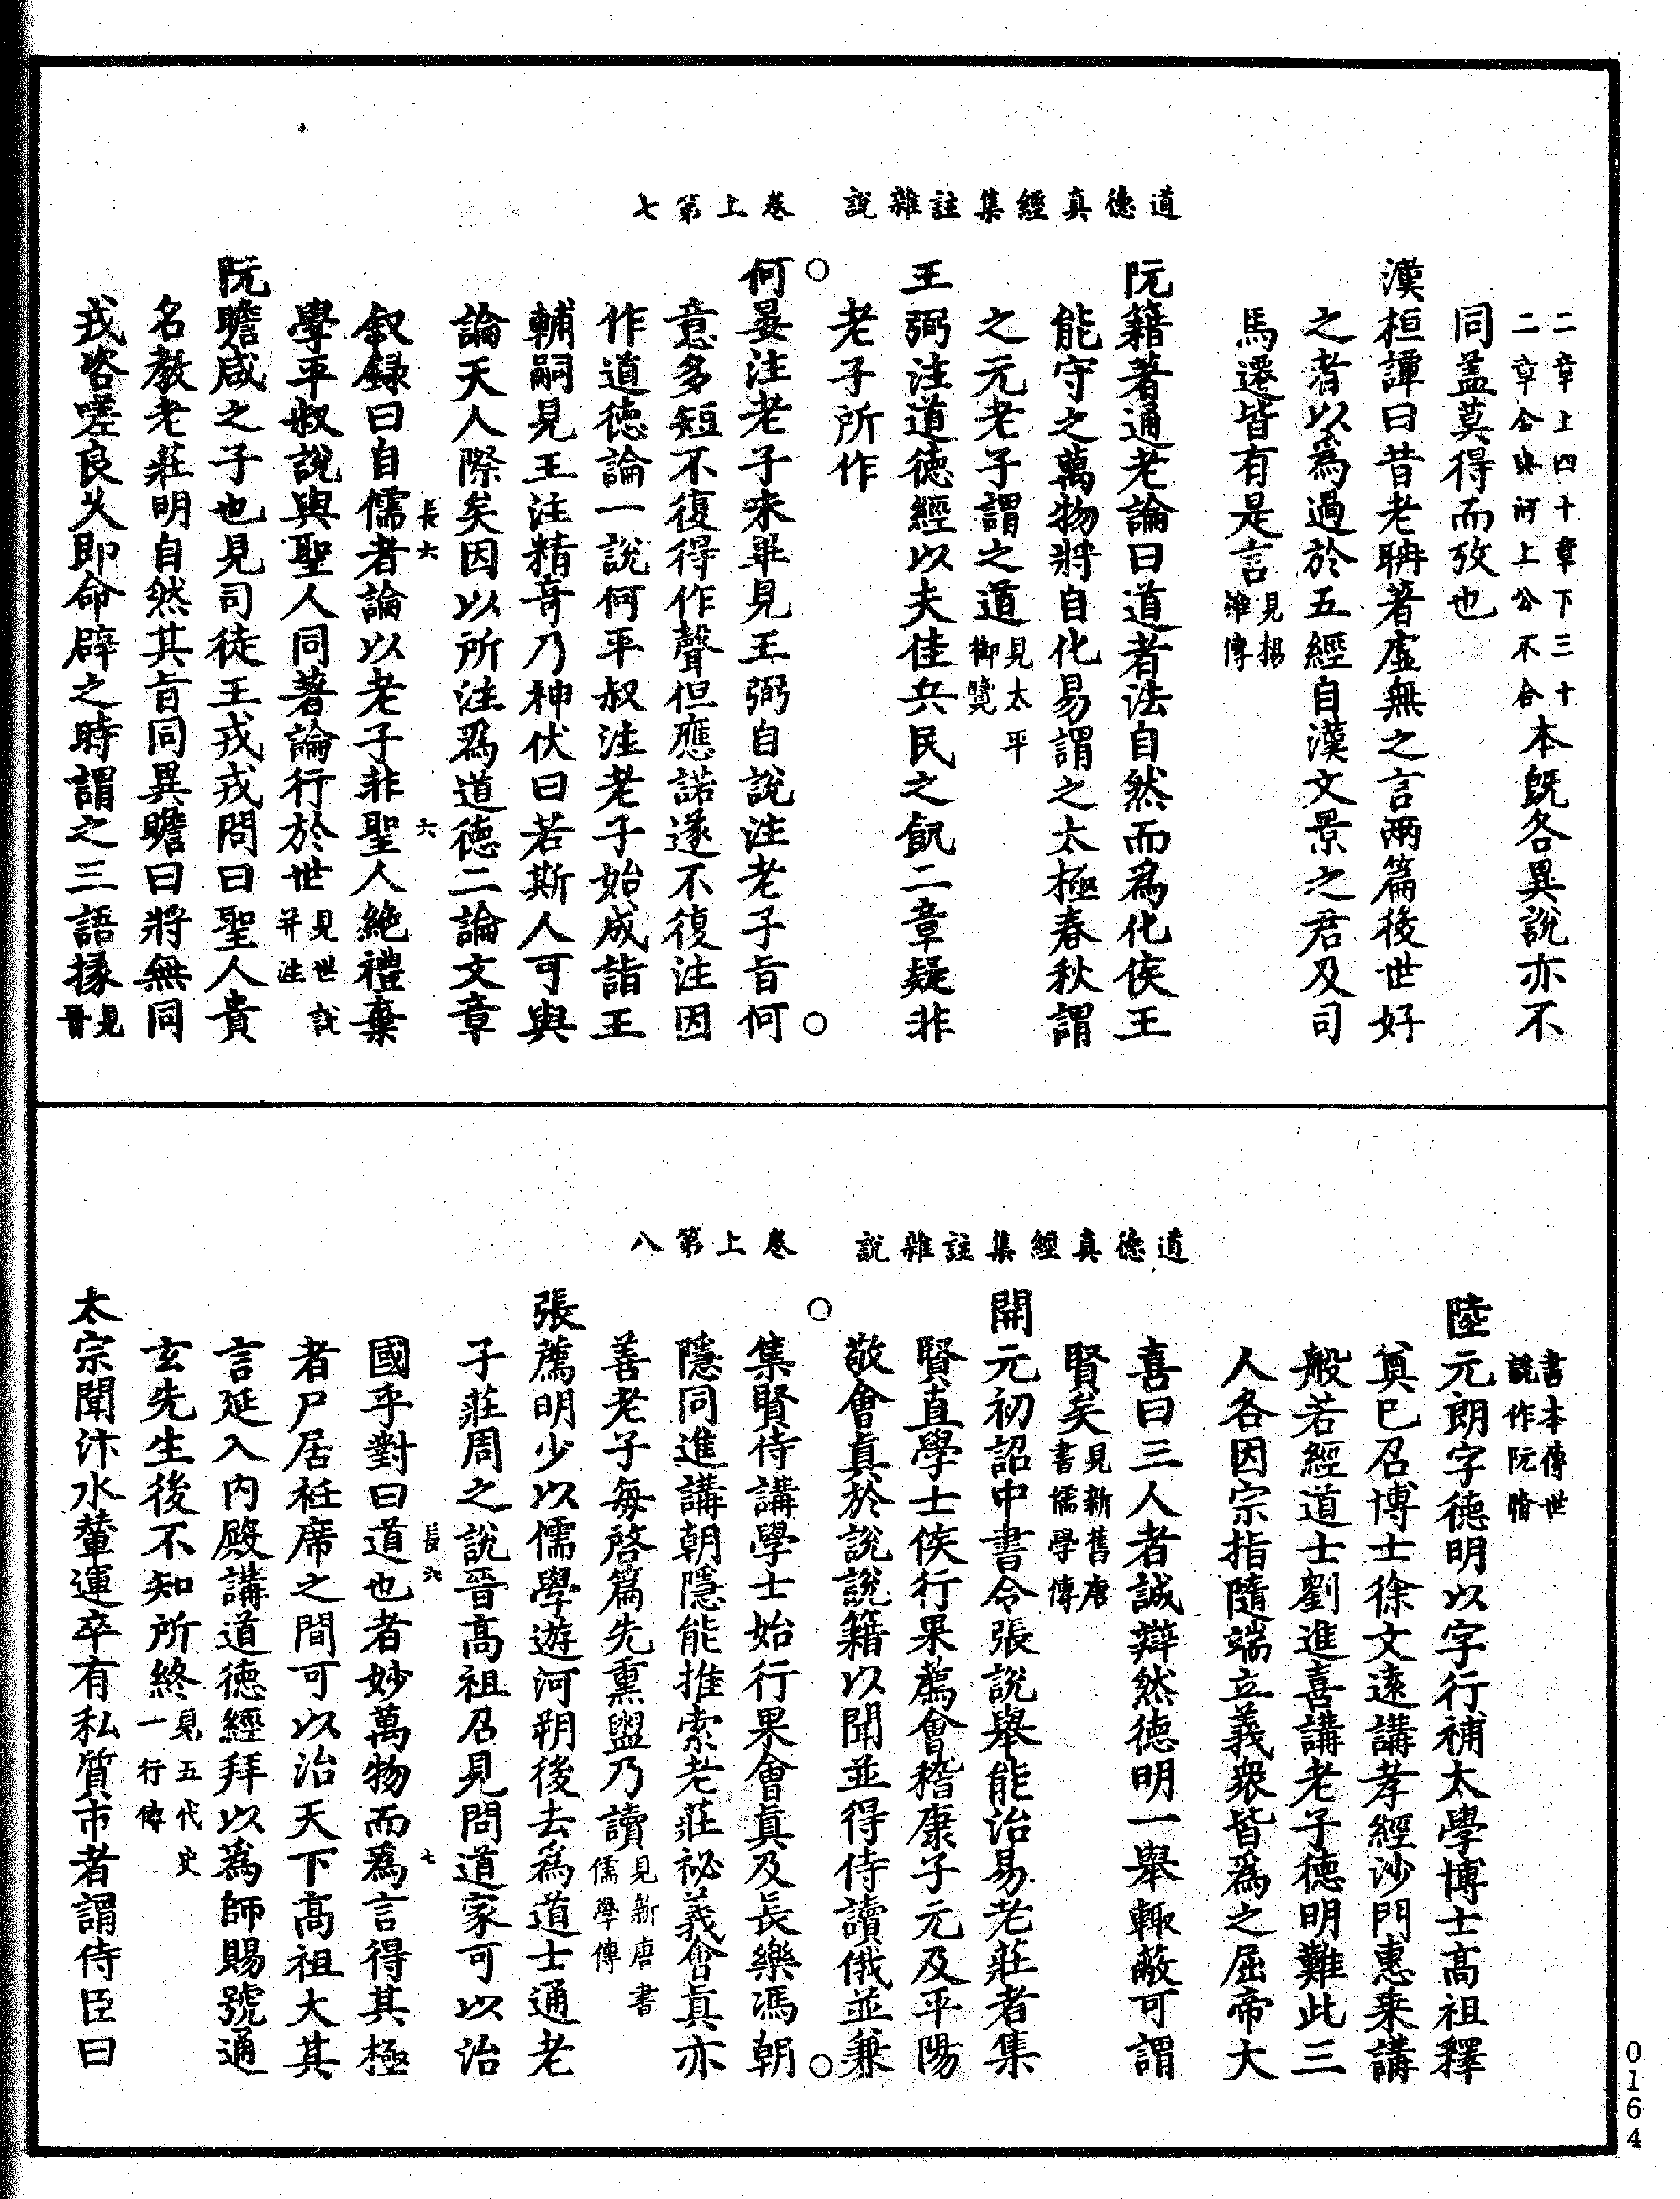 道德真經集註雜說　卷上第七
二章上四十章下三十
二章全與河上公不合本既各異說亦不
同蓋莫得而攷也
漢桓譚曰昔老聃著虛無之言兩篇後世好
之者以為過於五經自漢文景之君及司
馬遷皆有是言見楊雄傳
阮籍著通老論曰道者法自然而為化侯王
能守之萬物將自化易謂之太極春秋謂
之元老子謂之道見太平御覽
王弼注道德經以夫佳兵民之飢二章疑非
老子所作
○何晏注老子未畢見王弼自說注老子旨何○
意多短不復得作聲但應諾遂不復注因
作道德論一說何平叔注老子始成詣王
輔嗣見王注精奇乃神伏曰若斯人可與
論天人際矣因以所注為道德二論文章
長六　六
叙錄曰自儒者論以老子非聖人絶禮棄
學平叔說與聖人同著論行於世見世說并注
阮瞻咸之子也見司徒王戎戎問曰聖人貴
名教老莊明自然其旨同異瞻曰將無同
戎咨嗟良久即命辟之時謂之三語掾見晉
道德真經集註雜說　卷上第八
書本傳世說作阮脩
陸元朗字德明以字行補太學博士高祖釋
奠已召博士徐文遠講孝經沙門惠乘講
般若經道士劉進喜講老子德明難此三
人各因宗指隨端立義衆皆為之屈帝大
喜曰三人者誠辯然德明一舉輒蔽可謂
賢矣見新舊唐書儒學傳
開元初詔中書令張說舉能治易老莊者集
賢直學士侯行果薦會稽康子元及平陽
敬會真於說說籍以聞並得侍讀俄並兼
○集賢侍講學士始行果會真及長樂馮朝○
隱同進講朝隱能推索老莊祕義會真亦
善老子每啓篇先熏盥乃讀見新唐書儒學傳
張薦明少以儒學遊河朔後去為道士通老
子莊周之說晉高祖召見問道家可以治
長六　七
國乎對曰道也者妙萬物而為言得其極
者尸居衽席之間可以治天下高祖大其
言延入內殿講道德經拜以為師賜號通
玄先生後不知所終見五代史一行傳
太宗聞汴水輦運卒有私質市者謂侍臣曰
0164